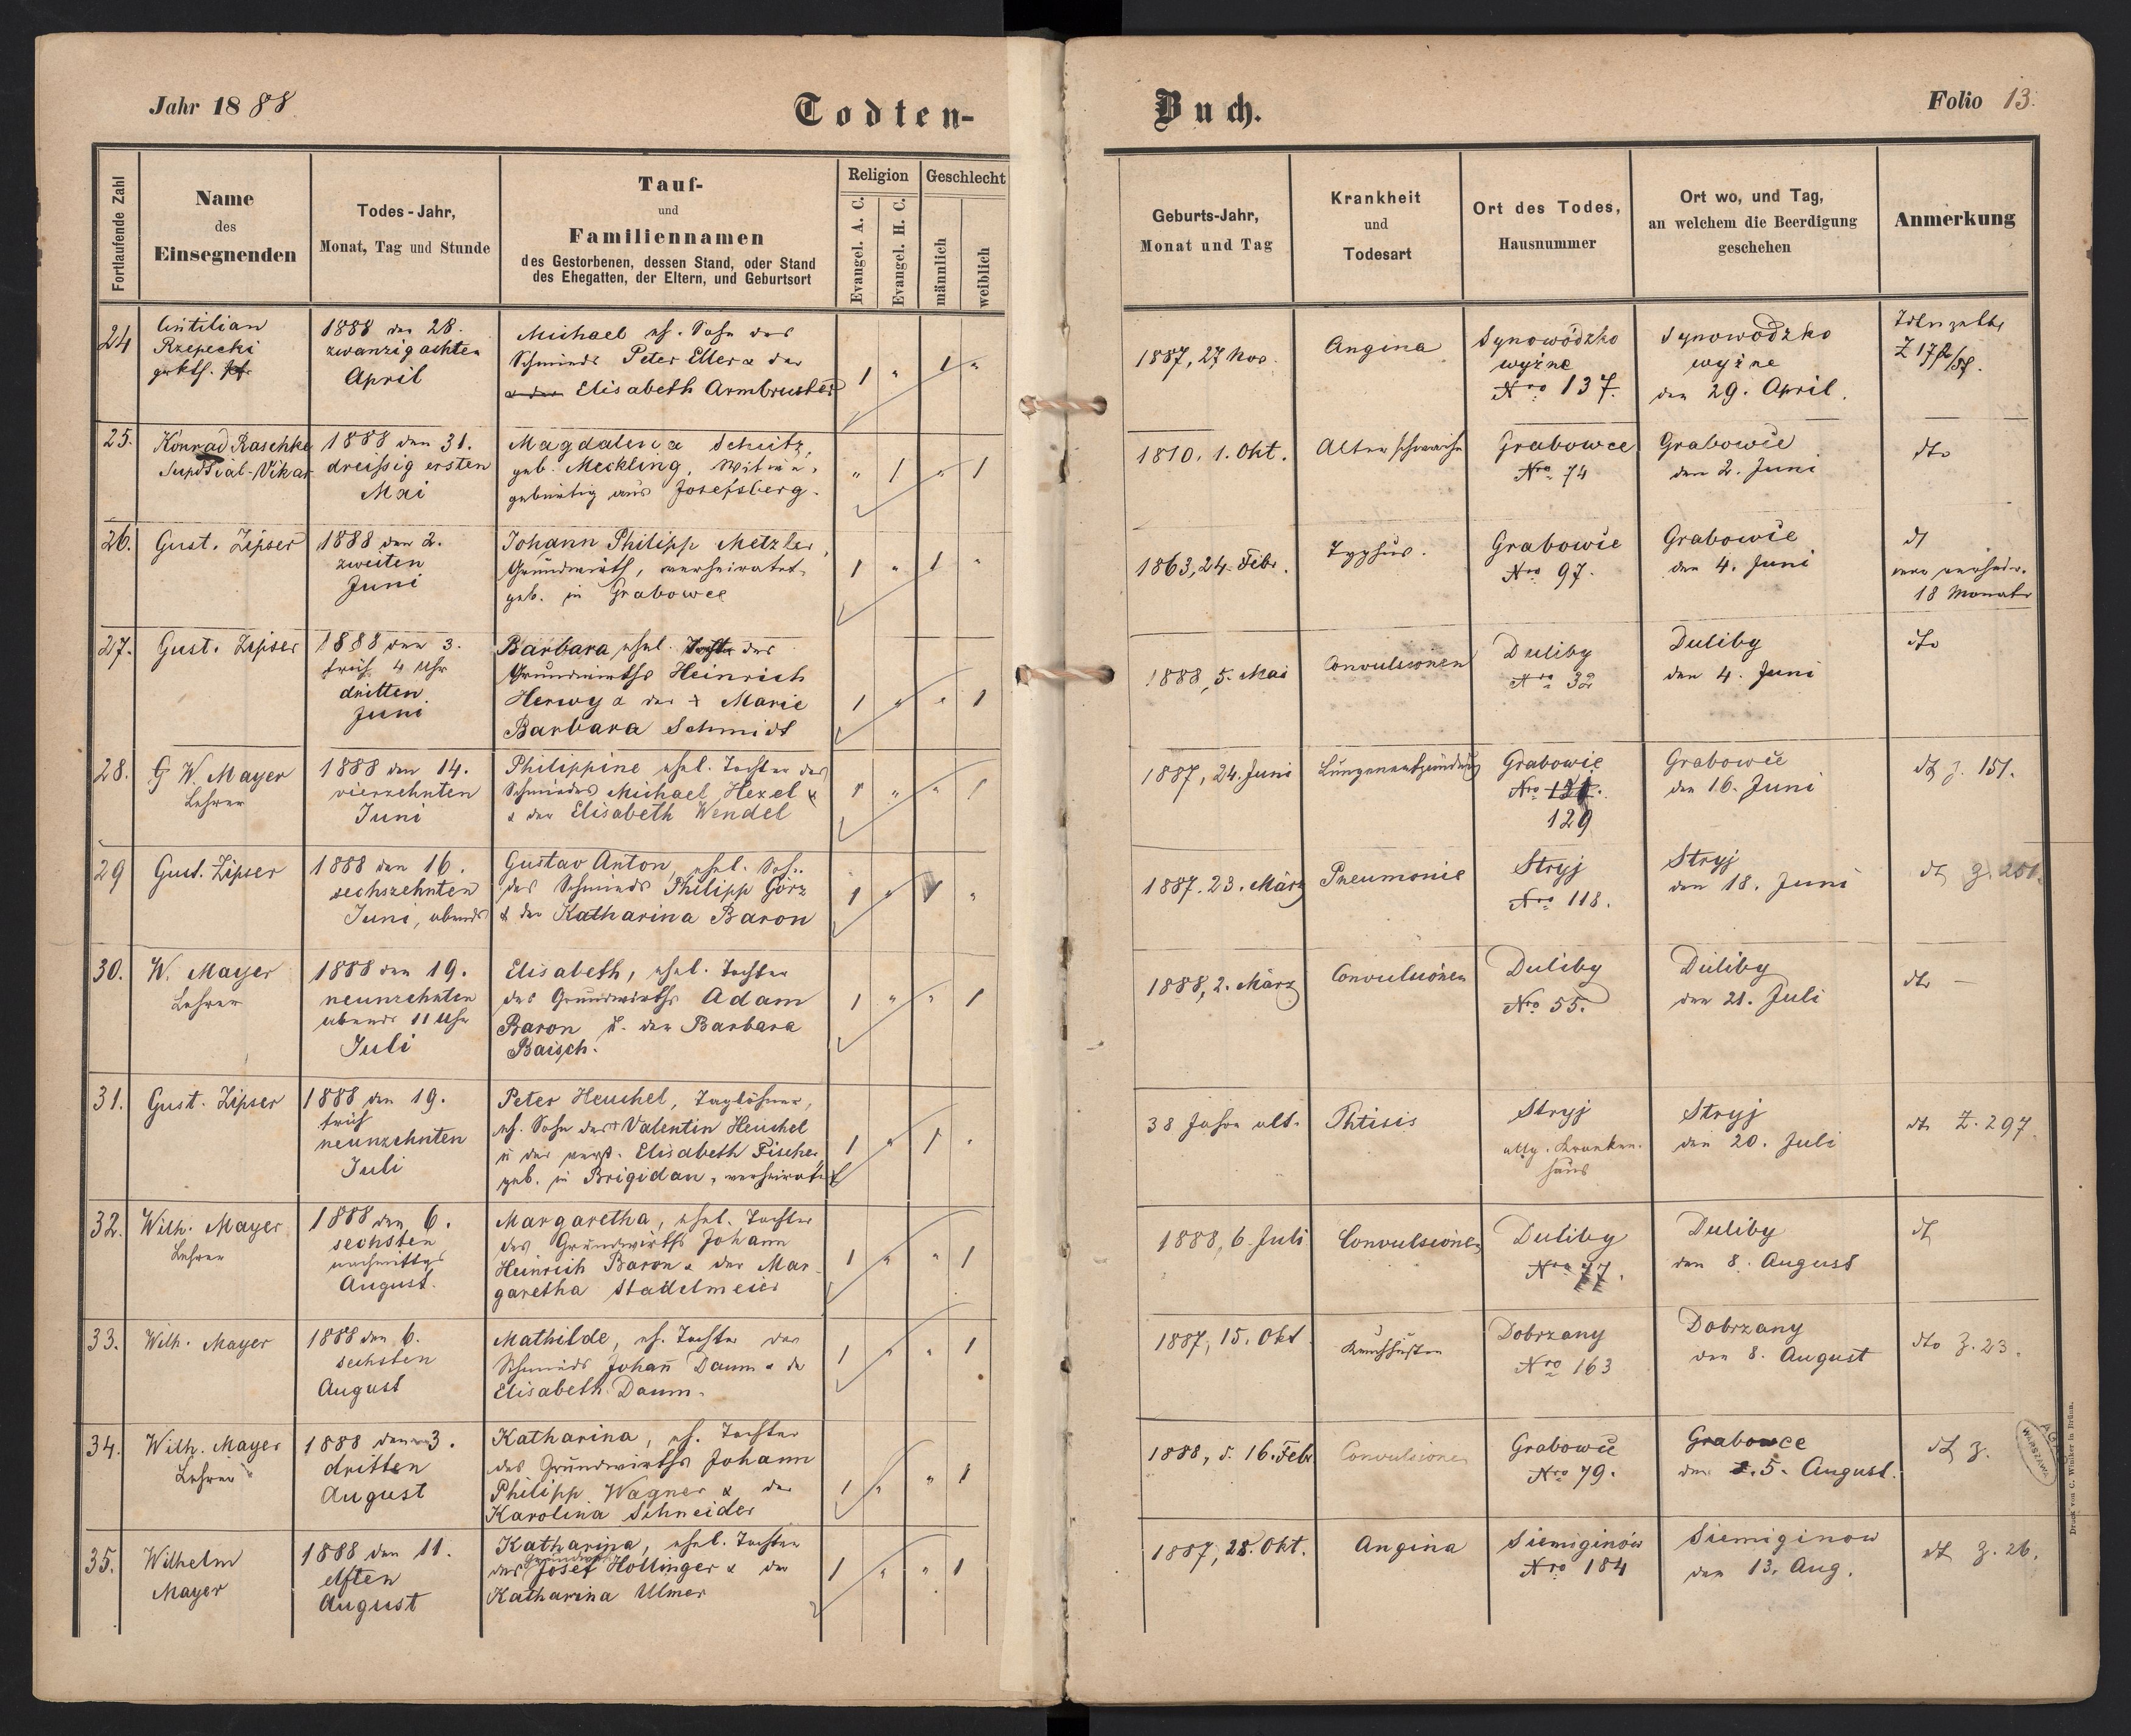 Jahr 1888.
Todten-
Fortlaufende Zahl
Name
des
Einsegnenden
Todes-Jahr,
Monat, Tag und Stunde
Tauf-
und
Familiennamen
des Gestorbenen, dessen Stand, oder Stand
des Ehegatten, der Eltern, und Geburtsort
Religion
Evangel. A. C.
Evangel. H. C.
Geschlecht
männlich
weiblich
24
Rzepecki
1888 den 28.
zwanzigachten
April
Michael eh. Sohn des
Schmieds Peter Eller & der
& der Elisabeth Armbruster
1 " 1 "
25.
Konrad Raschke
Vikar
1888 den 31.
dreissig ersten
Mai
Magdalena Schütz,
geb. Meckling, Witwe,
gebürtig aus Josefsberg.
" 1 " 1
26.
Gust. Zipser
1888 den 2.
zweiten
Juni
Johann Philipp Metzler,
Grundwirth, verheiratet,
geb. in Grabowce
1 " 1 "
27.
Gust. Zipser
1888 den 3.
früh 4 Uhr
dritten
Juni
Barbara, ehel. Tocht. des
Grundwirths Heinrich
Herwy & der + Marie
Barbara Schmidt
1 " " 1
28.
G W. Mayer
Lehrer
1888 den 14.
vierzehnten
Juni
Philippine ehel. Tochter des
Schmiedes Michael Hexel &
& der Elisabeth Wendel
1 " " 1
29
Gust. Zipser
1888 den 16.
sechszehnten
Juni, abends
Gustav Anton, ehel. Sohn
des Schmieds Philipp Görz
& der Katharina Baron
1 " 1 "
30.
W. Mayer
Lehrer
1888 den 19.
neunzehnten
abends 11 Uhr
Juli
Elisabeth, ehel. Tochter
des Grundwirths Adam
Baron u. der Barbara
Baisch.
1 " " 1
31.
Gust. Zipser
1888 den 19.
früh
neunzehnten
Juli
Peter Heuchel, Taglöhner,
eh. Sohn des Valentin Heuchel
u der verst. Elisabeth Fischer,
geb. in Brigidau, verheiratet
1 " 1 "
32.
Wilh. Mayer
Lehrer
1888 den 6.
sechsten
nachmittags
August.
Margaretha, ehel. Tochter
des Grundwirths Johann
Heinrich Baron & der Mar-
garetha Stadelmeier
1 " " 1
33.
Wilh. Mayer
1888 den 6.
sechsten
August
Mathilde, eh. Tochter des
Schmieds Johañ Daum & der
Elisabeth Daum.
1 " " 1
34.
Wilh. Mayer
Lehrer
1888 den 3.
dritten
August
Katharina, eh. Tochter
des Grundwirths Johann
Philipp Wagner & der
Karolina Schneider
1 " " 1
35.
Wilhelm
Mayer
1888 den 11.
elften
August
Katharina, ehel. Tochter
des Grundwirths Josef Hollinger & der
Katharina Ulmer
1 " " 1
Buch.
Folio 13.
Geburts-Jahr,
Monat und Tag
Krankheit
und
Todesart
Ort des Todes,
Hausnummer
Ort wo, und Tag,
an welchem die Beerdigung
geschehen
Anmerkung
1887, 27 Nov.
Angina
Synowódzko
wyżne
Nro 137.
Synowódzko
wyżne
den 29. April.
1810. 1. Okt.
Altersschwäche
Grabowce
Nro 74
Grabowce
den 2. Juni
dto
1863, 24. Febr.
Typhus.
Grabowce
Nro 97.
Grabowce
den 4. Juni
dt
war verheir.
18 Monate
1888, 5. Mai
Convulsionen
Duliby
Nro 32
Duliby
den 4. Juni
dto
1887, 24. Juni
Lungenentzündung
Grabowce
Nro 121.
129
Grabowce
den 16. Juni
dt z. 151.
1887. 23. März
Pneumonie
Stryj
Nro 118.
Stryj
den 18. Juni
dt z. 251.
1888, 2. März
Convulsionen
Duliby
Nro 55.
Duliby
den 21. Juli
dto —
38 Jahre alt.
Phtisis
Stryj
allg. Kranken-
haus
Stryj
den 20. Juli
dt Z. 297.
1888, 6. Juli
Convulsionen
Duliby
Nro 77.
Duliby
den 8. August
dt
1887, 15. Okt.
Keuchhusten
Dobrzany
Nro 163
Dobrzany
den 8. August
dto Z. 23.
1888, d. 16. Febr
Convulsionen
Grabowce
Nro 79.
Grabowce
den 5. August.
dt z.
1887, 28. Okt.
Angina
Siemiginów
Nro 184
Siemiginow
den 13. Aug.
dt Z. 26.
WARSZAWA
Druck von C. Winiker in Brünn.